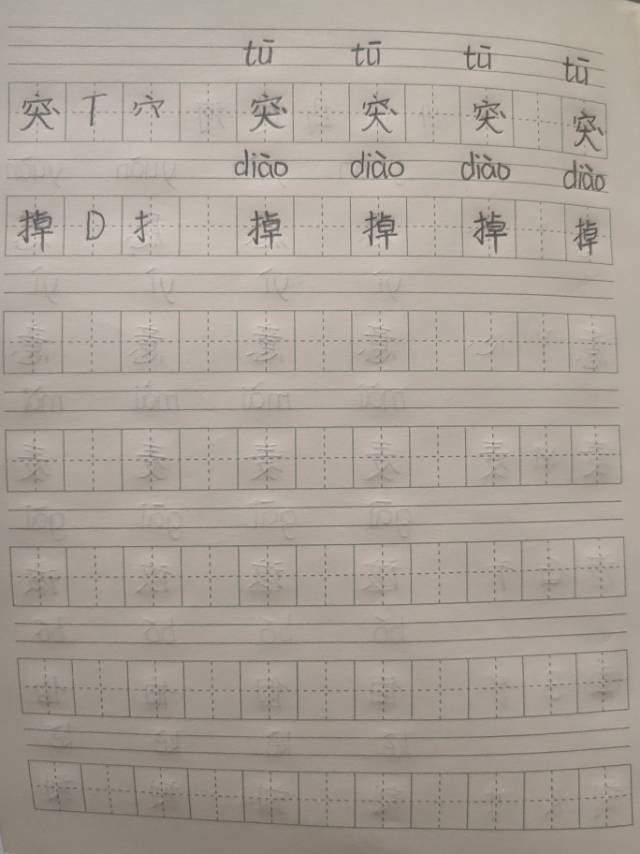 tū tū tū tū
突 T 穴 突 突 突 突
diào diào diào diào
掉 D 扌 掉 掉 掉 掉